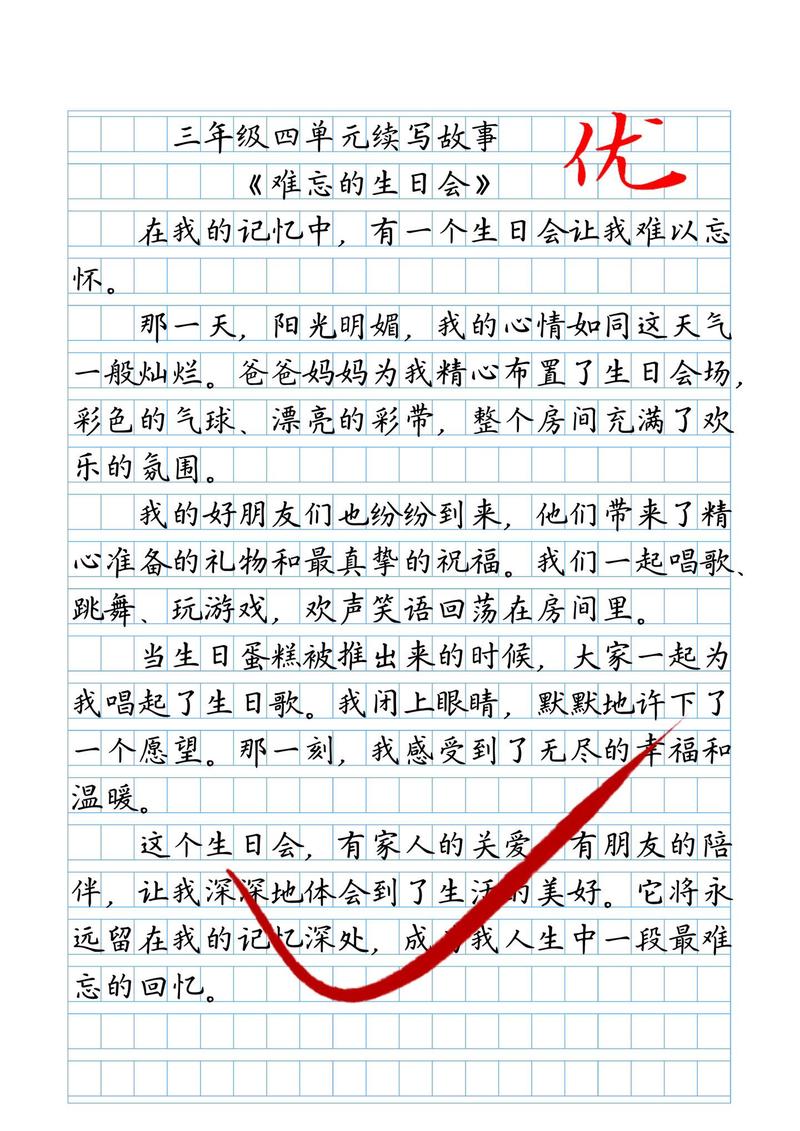 三年级四单元续写故事
优
《难忘的生日会》
在我的记忆中，有一个生日会让我难以忘
怀。
那一天，阳光明媚，我的心情如同这天气
一般灿烂。爸爸妈妈为我精心布置了生日会场，
彩色的气球、漂亮的彩带，整个房间充满了欢
乐的氛围。
我的好朋友们也纷纷到来，他们带来了精
心准备的礼物和最真挚的祝福。我们一起唱歌、
跳舞、玩游戏，欢声笑语回荡在房间里。
当生日蛋糕被推出来的时候，大家一起为
我唱起了生日歌。我闭上眼睛，默默地许下了
一个愿望。那一刻，我感受到了无尽的幸福和
温暖。
这个生日会，有家人的关爱，有朋友的陪
伴，让我深深地体会到了生活的美好。它将永
远留在我的记忆深处，成为我人生中一段最难
忘的回忆。